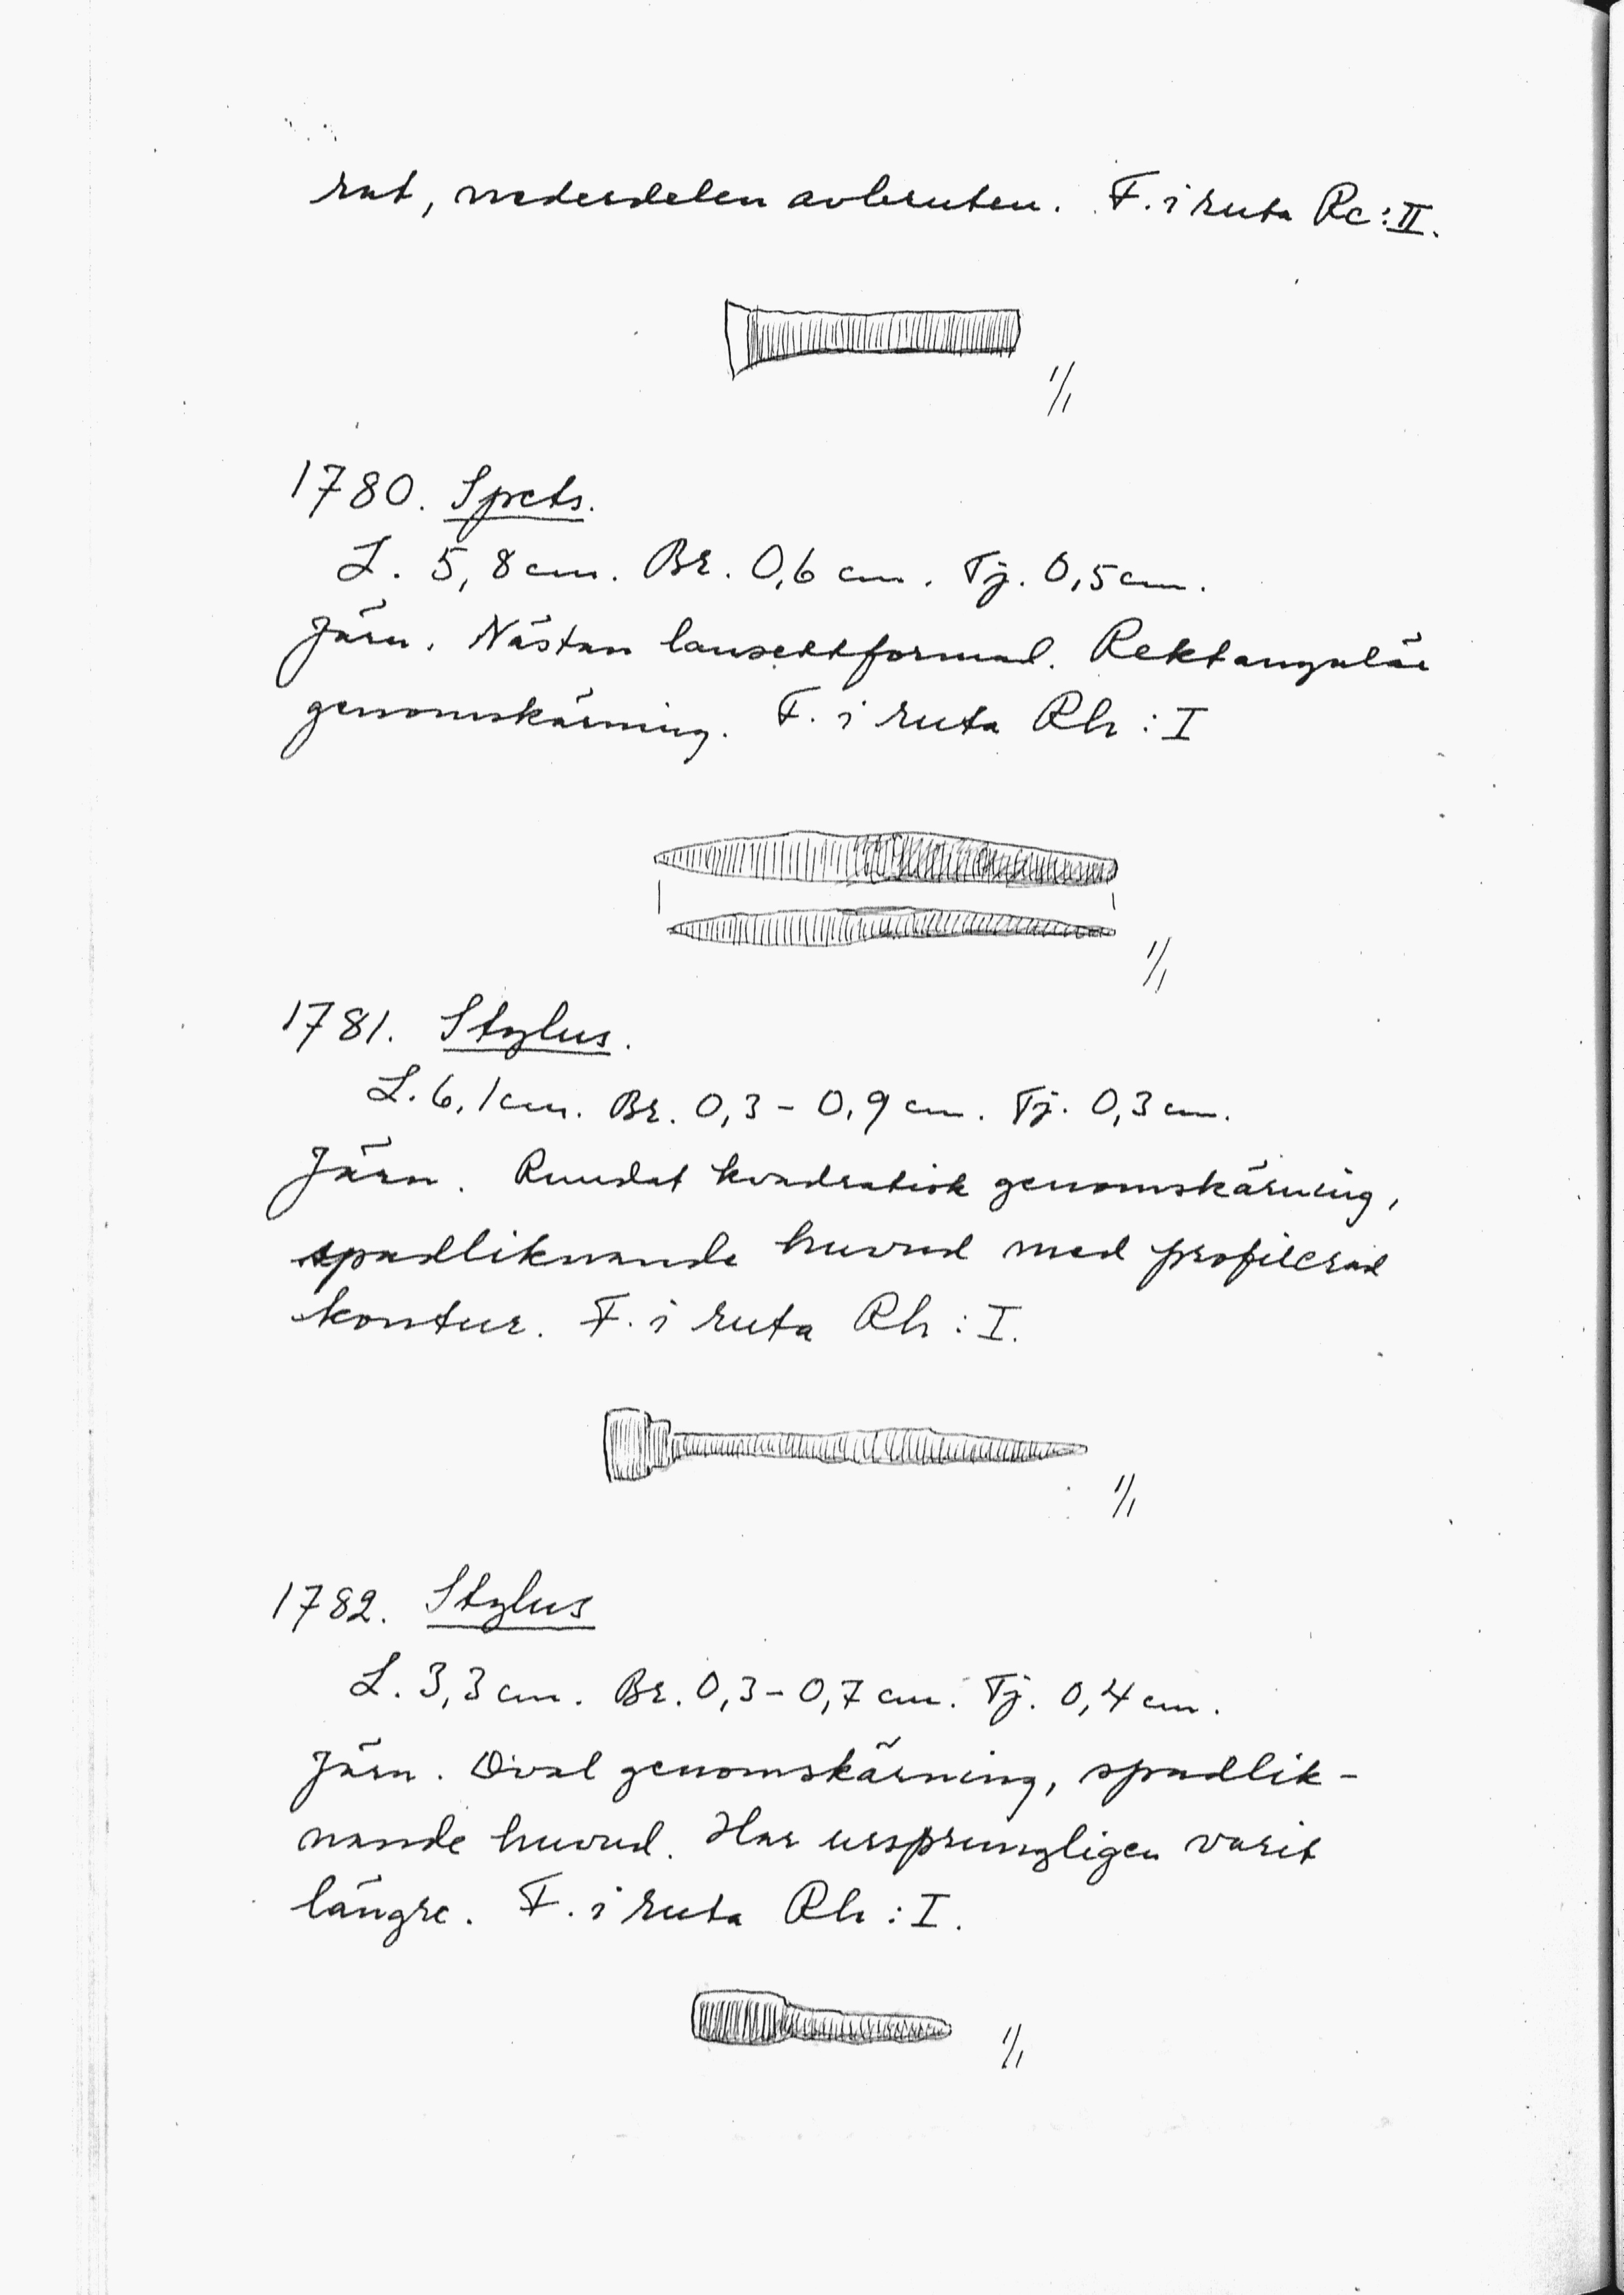 rat, nederdelen avbruten. F. i ruta Rc:II.
1/1
1780. Spets.
L. 5,8 cm. Br. 0,6 cm. Tj. 0,5 cm.
Järn. Nästan lansettformad. Rektangulär
genomskärning. F. i ruta Rh:I
1/1
1781. Stylus.
L. 6,1 cm. Br. 0,3-0,9 cm. Tj. 0,3 cm.
Järn. Rundat kvadratisk genomskärning,
spadliknande huvud med profilerad
kontur. F. i ruta Rh:I.
1/1
1782. Stylus
L. 3,3 cm. Br. 0,3-0,7 cm. Tj. 0,4 cm.
Järn. Oval genomskärning, spadlik-
nande huvud. Har ursprungligen varit
längre. F. i ruta Rh:I.
1/1